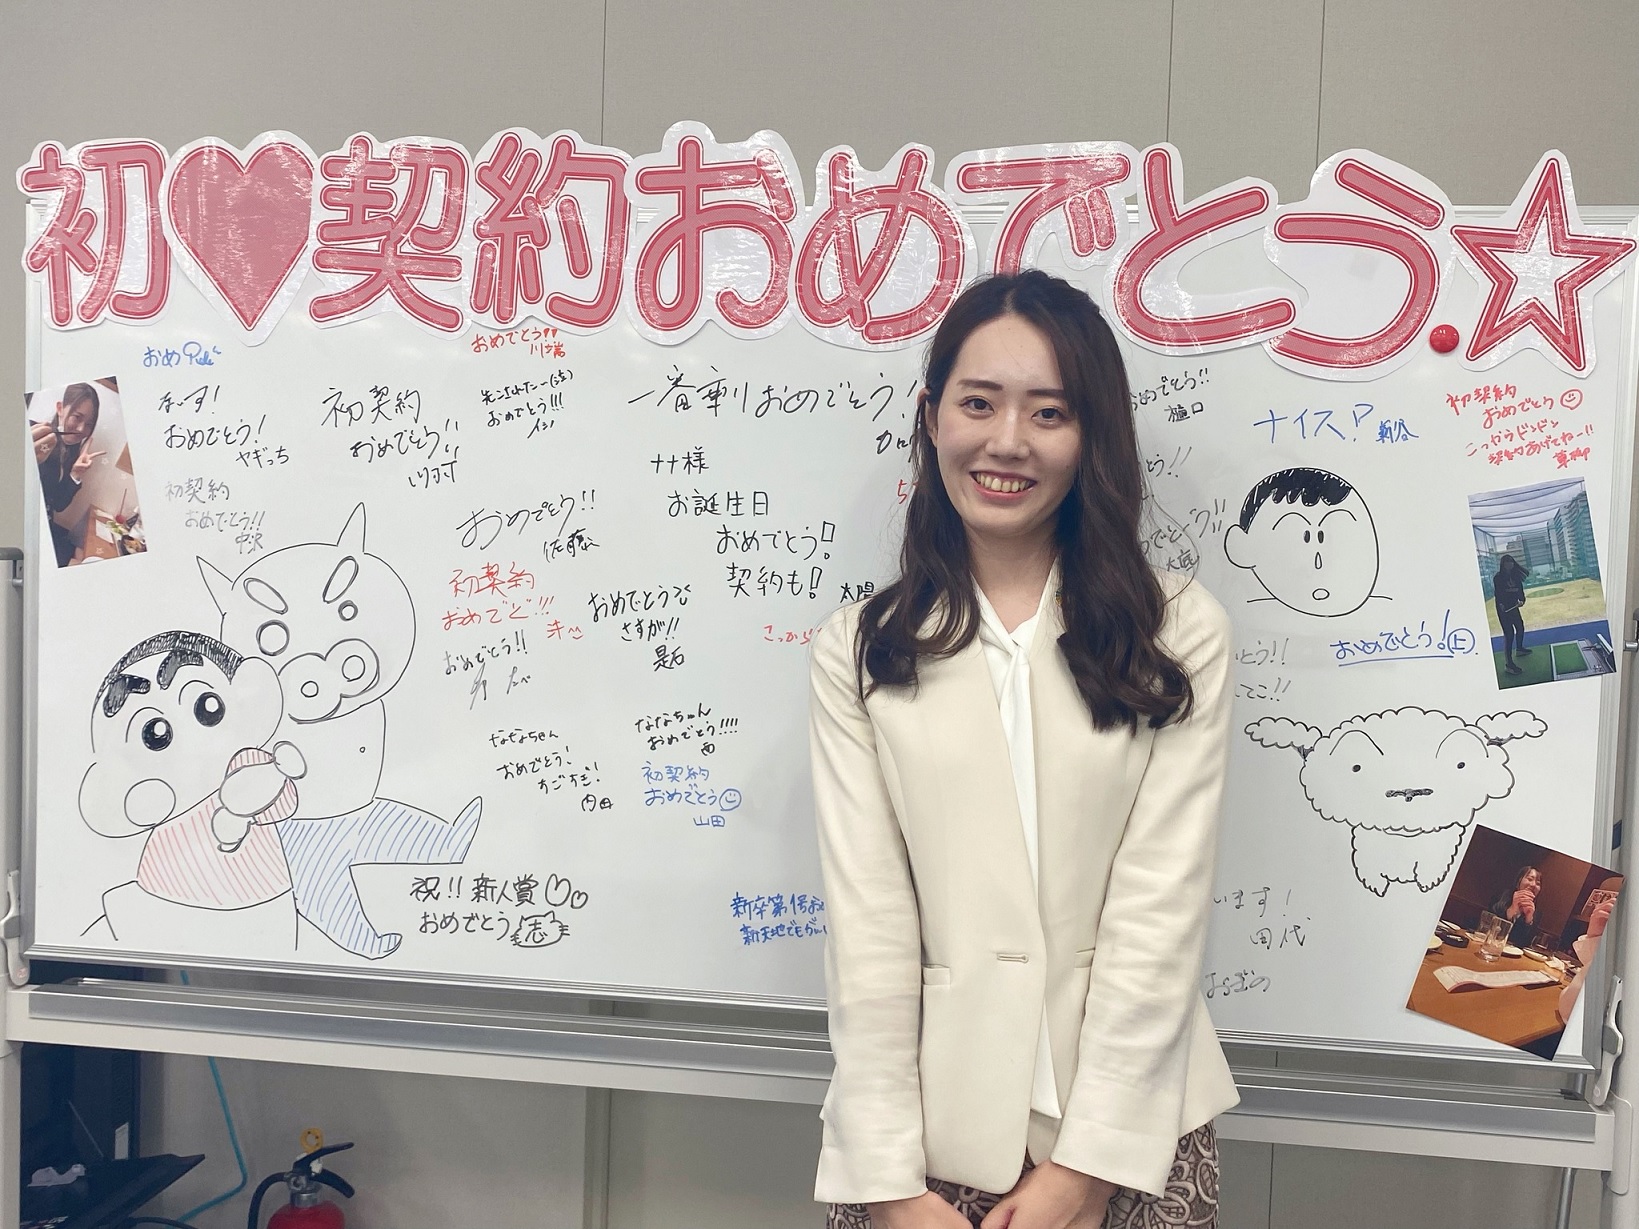 初♥契約おめでとう.☆
おめでとう!!
川端
おめ
ないす!
おめでとう!
ヤギっち
初契約
おめでとう!!
中沢
初契約
おめでとう!!
川村
先こされたー(泣)
おめでとう!!!
イシ
一番乗りおめでとう!
ナナ様
お誕生日
おめでとう!
契約も!
太陽
おめでとう!!
佐藤
初契約
おめでと!!!
おめでとう!!
おめでとう
さすが!!
是石
ななちゃん
おめでとう!
すごすぎ!
内田
ななちゃん
おめでとう!!!!
西
初契約
おめでとう☺
山田
祝!!新人賞♡♡
おめでとう 志
新卒第1号お
新天地でもがん
おめでとう!!
樋口
ナイス!?
新谷
初契約
おめでとう☺
こっからドンドン
契約あげてねー!!
とう!!
めでとう!!
大底
おめでとう!㊤
とう!!
てこ!!
います!
田代
おぎの